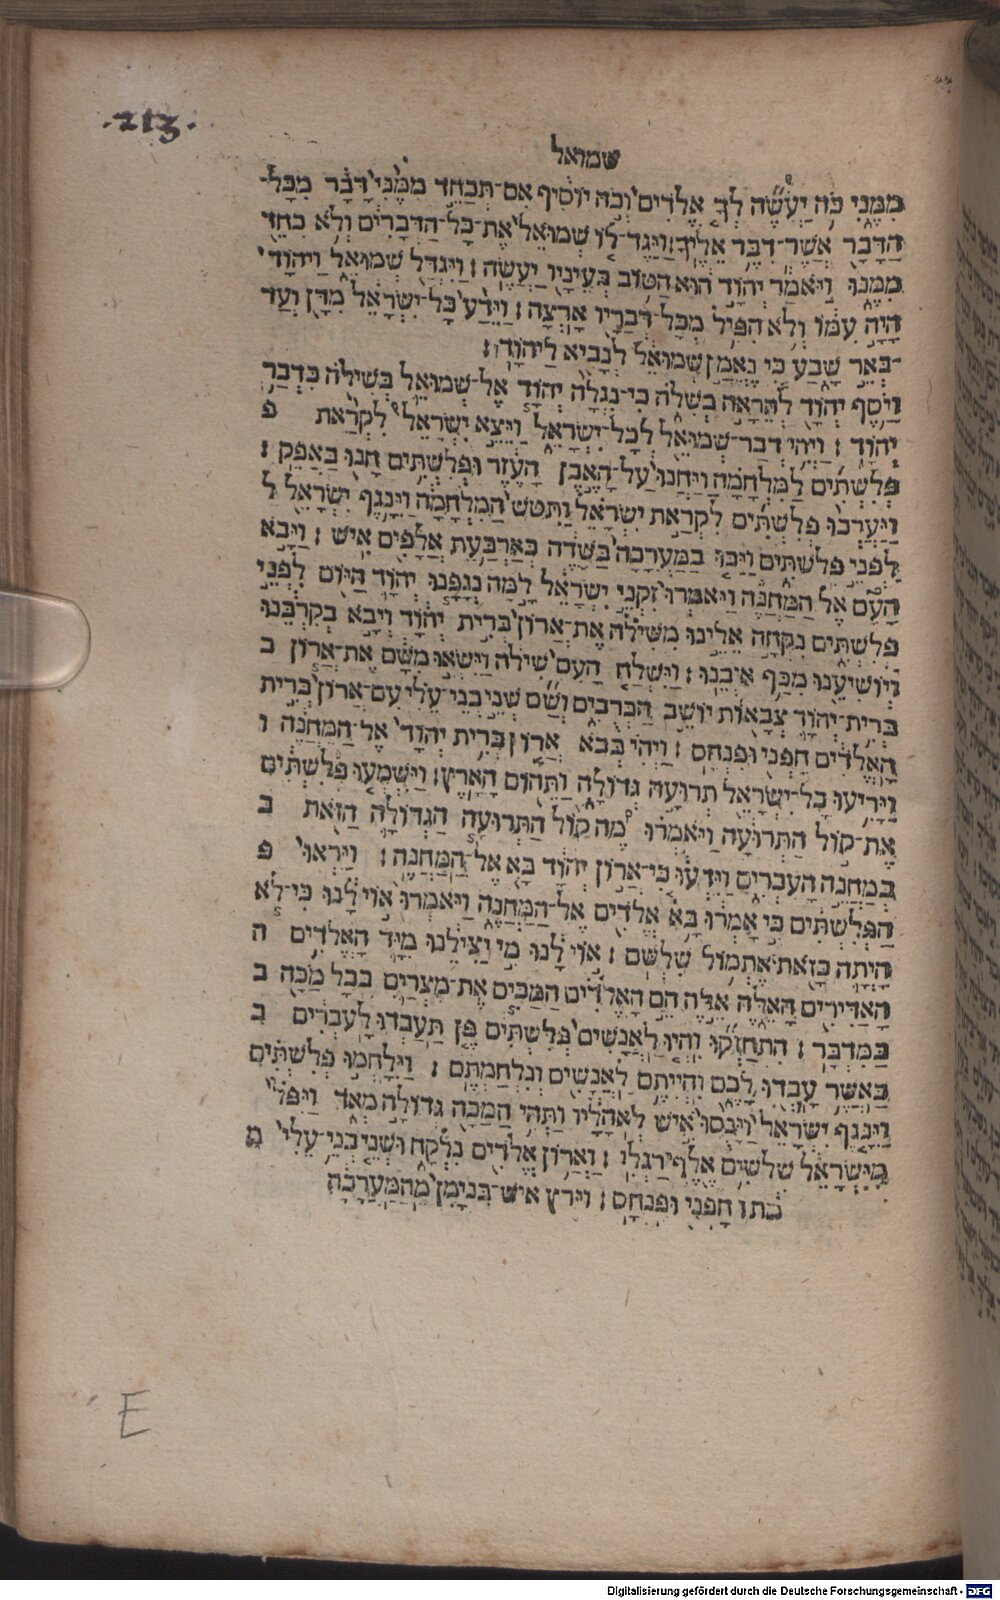 .213.
שמואל
מִמֶּנִּי כֹּה יַעֲשֶׂה לְּךָ אֱלֹדִים וְכֹה יוֹסִיף אִם־תְּכַחֵד מִמֶּנִּי דָּבָר מִכָּל־
הַדָּבָר אֲשֶׁר־דִּבֶּר אֵלֶיךָ׃ וַיַּגֶּד־לוֹ שְׁמוּאֵל אֶת־כָּל־הַדְּבָרִים וְלֹא כִחֵד
מִמֶּנּוּ וַיֹּאמַר יְהוָֹד הוּא הַטּוֹב בְּעֵינָיו יַעֲשֶׂה׃ וַיִּגְדַּל שְׁמוּאֵל וַיהוָֹד
הָיָה עִמּוֹ וְלֹא הִפִּיל מִכָּל־דְּבָרָיו אָרְצָה׃ וַיֵּדַע כָּל־יִשְׂרָאֵל מִדָּן וְעַד
־בְּאֵר שָׁבַע כִּי נֶאֱמָן שְׁמוּאֵל לְנָבִיא לַיהוָֹד׃
וַיֹּסֶף יְהוָֹד לְהֵרָאֹה בְשִׁלֹה כִּי־נִגְלָה יְהוָֹד אֶל־שְׁמוּאֵל בְּשִׁילֹה כִּדְבַר
יְהוָֹד׃ וַיְהִי דְבַר־שְׁמוּאֵל לְכָל־יִשְׂרָאֵל וַיֵּצֵא יִשְׂרָאֵל לִקְרַאת פ
פְּלִשְׁתִּים לַמִּלְחָמָה וַיַּחֲנוּ עַל־הָאֶבֶן הָעֵזֶר וּפְלִשְׁתִּים חָנוּ בַאֲפֵק׃
וַיַּעַרְכוּ פְלִשְׁתִּים לִקְרַאת יִשְׂרָאֵל וַתִּטֹּשׁ הַמִּלְחָמָה וַיִּנָּגֶף יִשְׂרָאֵל ל
לִפְנֵי פְלִשְׁתִּים וַיַּכּוּ בַמַּעֲרָכָה בַּשָּׂדֶה כְּאַרְבַּעַת אֲלָפִים אִישׁ׃ וַיָּבֹא
הָעָם אֶל הַמַּחֲנֶה וַיֹּאמְרוּ זִקְנֵי יִשְׂרָאֵל לָמָּה נְגָפָנוּ יְהוָֹד הַיּוֹם לִפְנֵי
פְלִשְׁתִּים נִקְחָה אֵלֵינוּ מִשִּׁילֹה אֶת־אֲרוֹן בְּרִית יְהוָֹד וְיָבֹא בְקִרְבֵּנוּ
וְיוֹשִׁיעֵנוּ מִכַּף אֹיְבֵנוּ׃ וַיִּשְׁלַח הָעָם שִׁילֹה וַיִּשְׂאוּ מִשָּׁם אֶת־אֲרוֹן ב
בְּרִית־יְהוָֹד צְבָאוֹת יוֹשֵׁב הַכְּרֻבִים וְשָׁם שְׁנֵי בְנֵי־עֵלִי עִם־אֲרוֹן בְּרִית
הָאֱלֹדִים חָפְנִי וּפִנְחָס׃ וַיְהִי כְּבֹא אֲרוֹן בְּרִית יְהוָֹד אֶל־הַמַּחֲנֶה ו
וַיָּרִיעוּ כָל־יִשְׂרָאֵל תְּרוּעָה גְדוֹלָה וַתֵּהוֹם הָאָרֶץ׃ וַיִּשְׁמְעוּ פְלִשְׁתִּים
אֶת־קוֹל הַתְּרוּעָה וַיֹּאמְרוּ מֶה קוֹל הַתְּרוּעָה הַגְּדוֹלָה הַזֹּאת ב
בְּמַחֲנֵה הָעִבְרִים וַיֵּדְעוּ כִּי־אֲרוֹן יְהוָֹד בָּא אֶל־הַמַּחֲנֶה׃ וַיִּרְאוּ פ
הַפְּלִשְׁתִּים כִּי אָמְרוּ בָּא אֱלֹדִים אֶל־הַמַּחֲנֶה וַיֹּאמְרוּ אוֹי לָנוּ כִּי־לֹא
הָיְתָה כָּזֹאת אֶתְמוֹל שִׁלְשֹׁם׃ אוֹי לָנוּ מִי יַצִּילֵנוּ מִיַּד הָאֱלֹדִים ה
הָאַדִּירִים הָאֵלֶּה אֵלֶּה הֵם הָאֱלֹדִים הַמַּכִּים אֶת־מִצְרַיִם בְּכָל מַכָּה ב
בַּמִּדְבָּר׃ הִתְחַזְּקוּ וִהְיוּ לַאֲנָשִׁים פְּלִשְׁתִּים פֶּן תַּעַבְדוּ לָעִבְרִים ב
כַּאֲשֶׁר עָבְדוּ לָכֶם וִהְיִיתֶם לַאֲנָשִׁים וְנִלְחַמְתֶּם׃ וַיִּלָּחֲמוּ פְלִשְׁתִּים
וַיִּנָּגֶף יִשְׂרָאֵל וַיָּנֻסוּ אִישׁ לְאֹהָלָיו וַתְּהִי הַמַּכָּה גְּדוֹלָה מְאֹד וַיִּפֹּל
מִיִּשְׂרָאֵל שְׁלֹשִׁים אֶלֶף רַגְלִי׃ וַאֲרוֹן אֱלֹדִים נִלְקָח וּשְׁנֵי בְנֵי־עֵלִי מ
מֵתוּ חָפְנִי וּפִנְחָס׃ וַיָּרָץ אִישׁ־בִּנְיָמִן מֵהַמַּעֲרָכָה
E
Digitalisierung gefördert durch die Deutsche Forschungsgemeinschaft - DFG